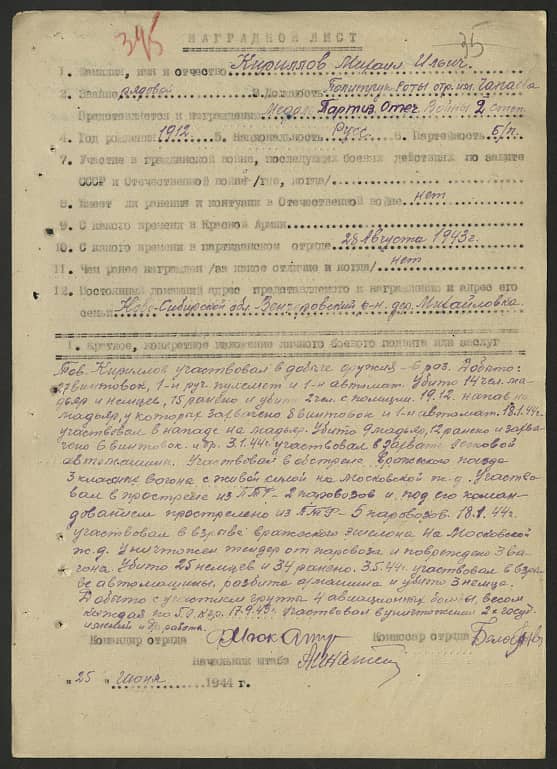 345
35
НАГРАДНОЙ ЛИСТ
1. Фамилия, имя и отчество Кириллов Михаил Ильич.
2. Звание рядовой 3. Должность Политрук роты отр. им. Чапаева
Представляется к награждению Медаль Партиз. Отеч. Войны 2 степ.
4. Год рождения 1912. 5. Национальность Русс. 6. Партийность б/п.
7. Участие в гражданской войне, последующих боевых действиях по защите
СССР и Отечественной войне /где, когда/
8. Имеет ли ранения и контузии в Отечественной войне нет
9. С какого времени в Красной Армии
10. С какого времени в партизанском отряде 28 Августа 1943 г.
11. Чем ранее награжден /за какое отличие и когда/ нет
12. Постоянный домашний адрес представляемого к награждению и адрес его
семьи Ново-Сибирской обл. Венгеровский р-н. дер. Михайловка.
1. Краткое, конкретное изложение личного боевого подвига или заслуг
Тов. Кириллов участвовал в добыче оружия - 6 раз. Добыто:
винтовок, 1-н руч. пулемет и 1-н автомат. Убито 14 чел. ма-
дьяр и немцев, 15 ранено и убито 2 чел. с полиции. 19.12. напав на
мадьяр, у которых захвачено 8 винтовок и 1-н автомат. 18.1.44 г.
участвовал в нападе на мадьяр. Убито 9 мадьяр, 12 ранено и захва-
чено 6 винтовок и др. 3.1.44 г. участвовал в захвате легковой
автомашины. Участвовал в обстреле вражеского поезда
3 классных вагона с живой силой на Московской ж.д. Участво-
вал в простреле из ПТР - 2 паровозов и под его коман-
дованием прострелено из ПТР - 5 паровозов. 18.1.44.
участвовал в взрыве вражеского эшелона на Московской
ж.д. Уничтожен тендер от паровоза и повреждено 3 ва-
гона. Убито 25 немцев и 34 ранено. 3.5.44 г. участвовал в взры-
ве автомашины, разбита а/машина и убито 3 немца.
Добыто с участием группы 4 авиационных бомбы, весом
каждая по 50 кгр. 17.9.43 г. участвовал в уничтожении 2-х
и др. работа.
Командир отряда Комиссар отряда
Начальник штаба
"25" июня 1944 г.